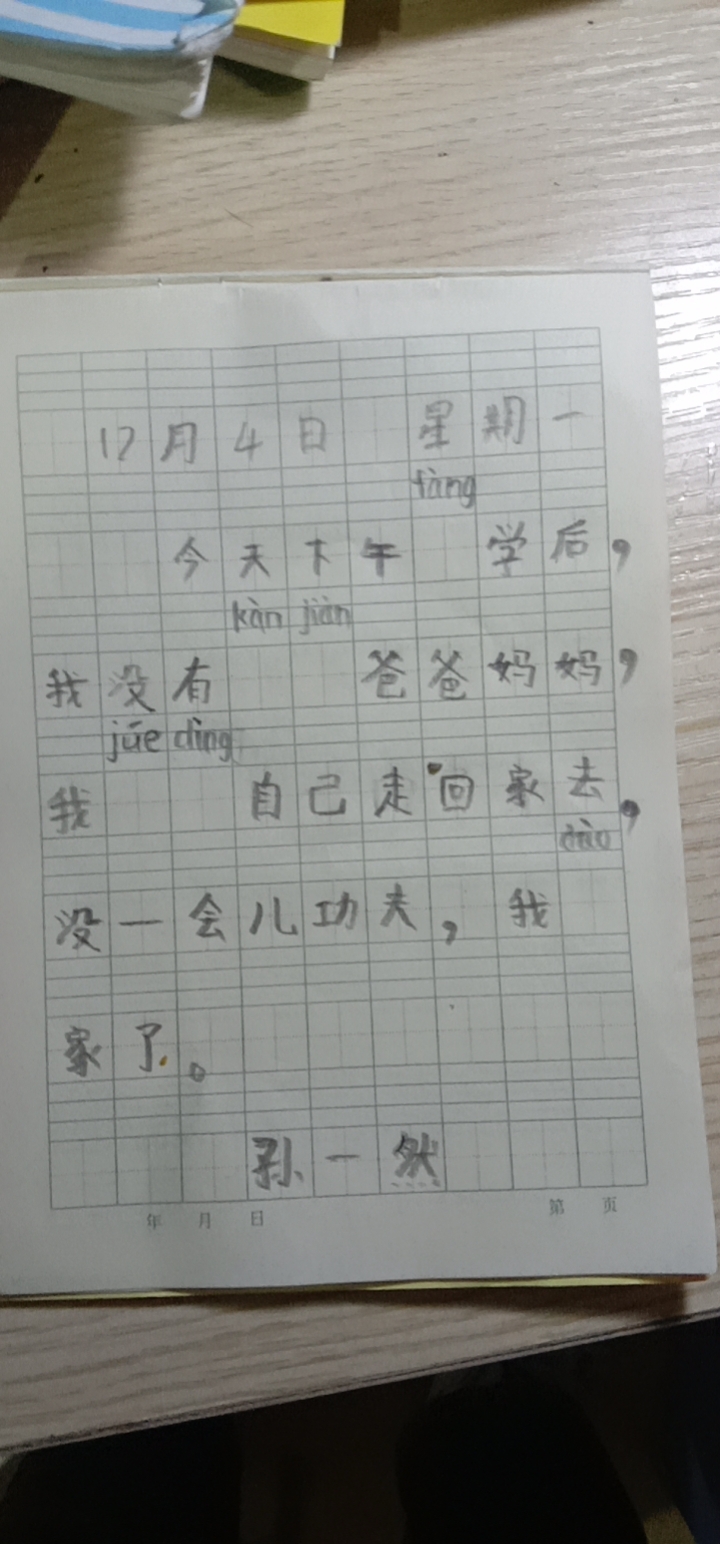 12月4日 星期一
fàng
今天下午 学后，
kàn jiàn
我没有 爸爸妈妈，
jūe dìng
我 自己走回家去，
dào
没一会儿功夫，我
家了。
孙一然
年 月 日 第 页